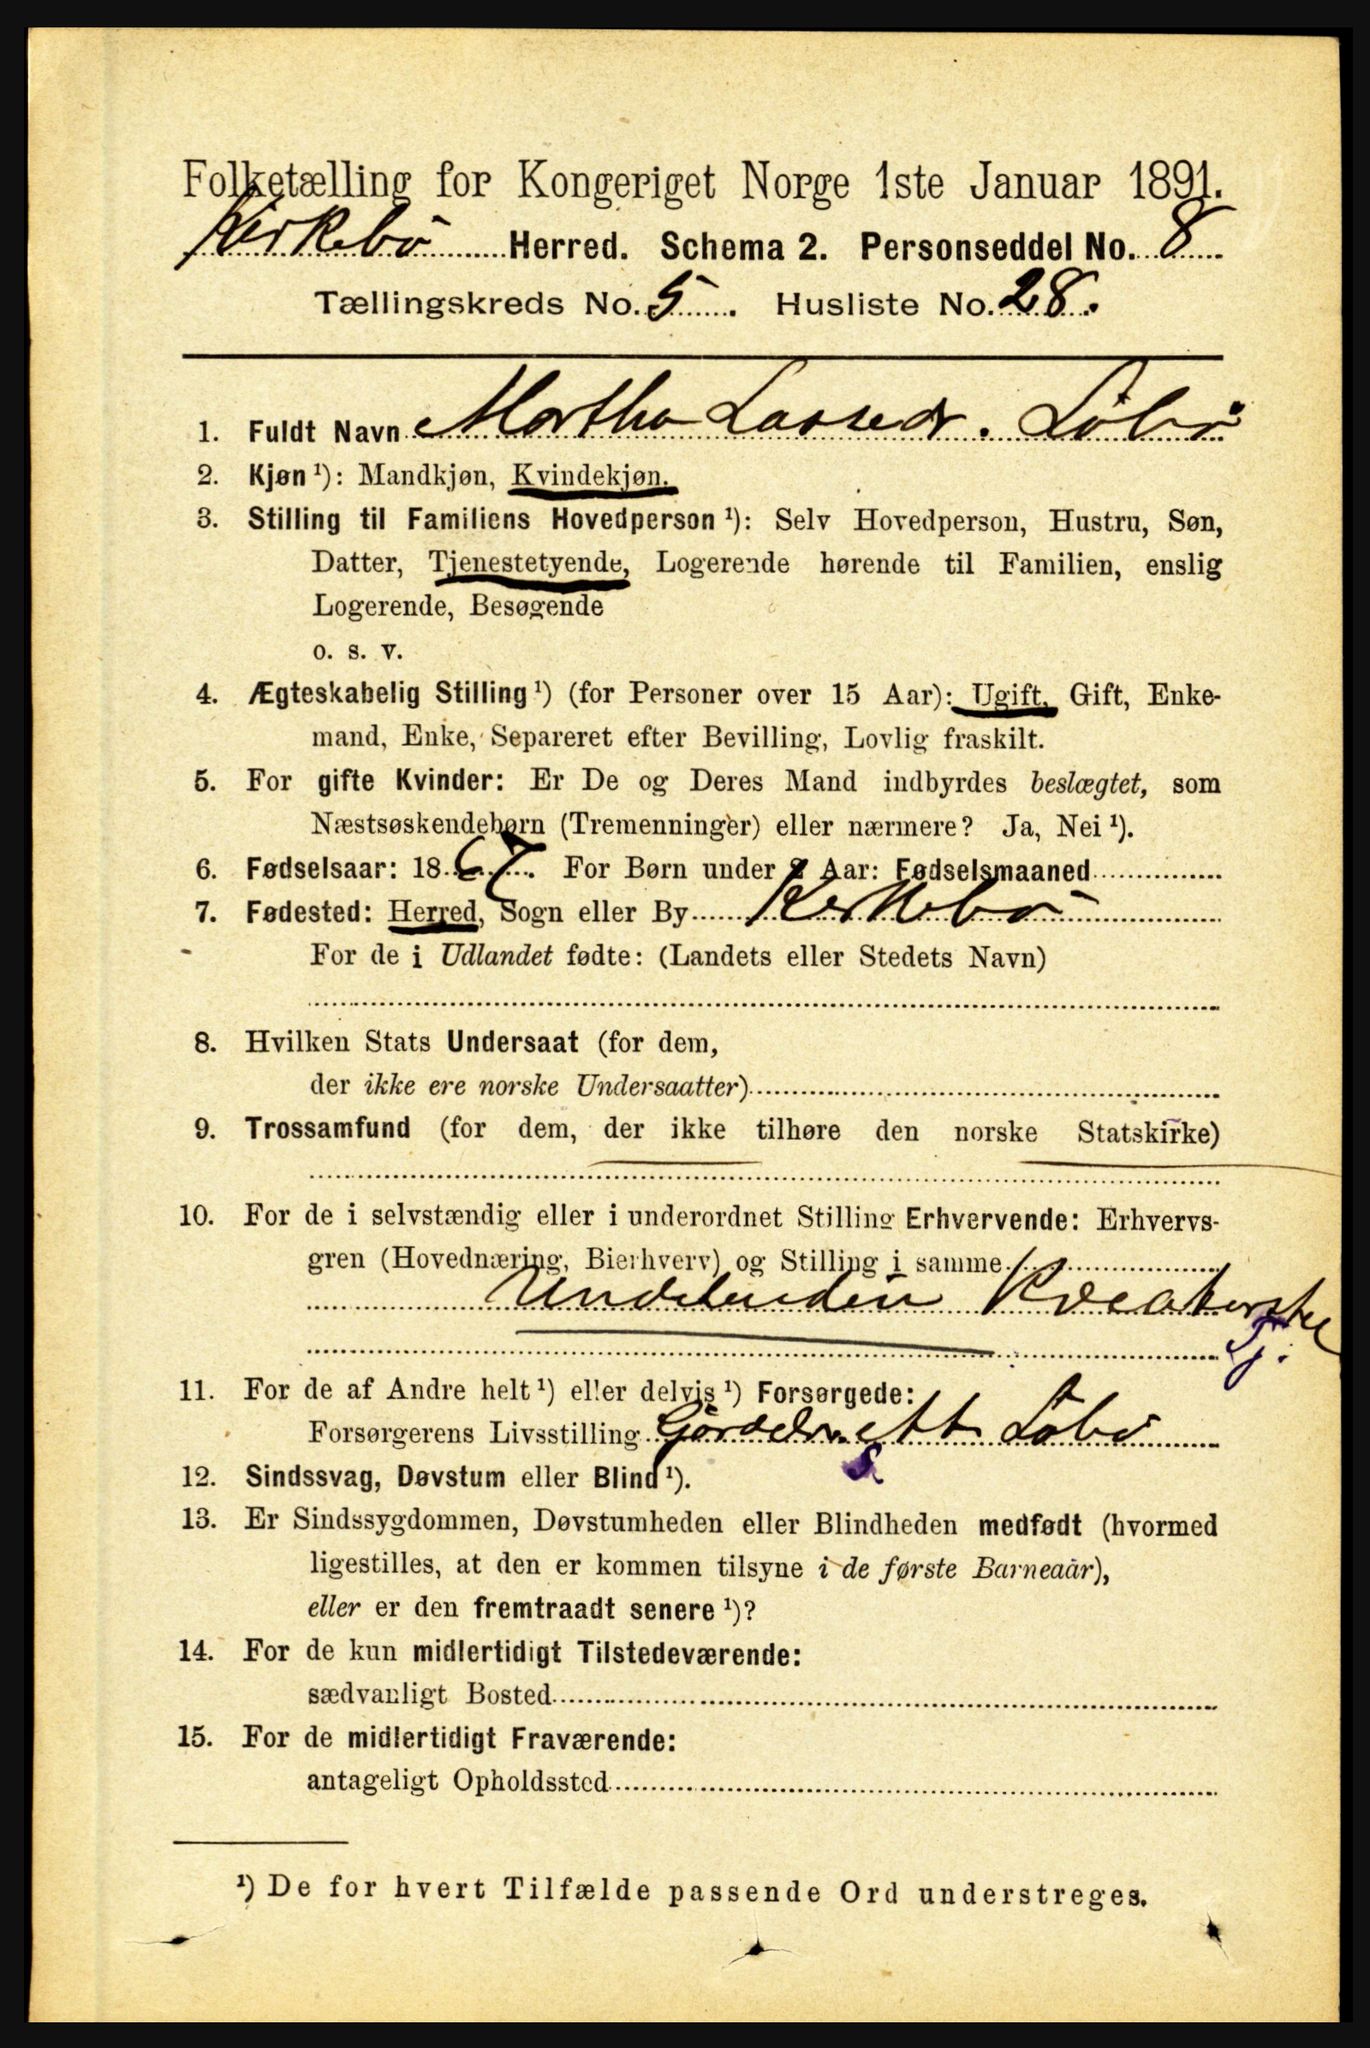 Folketælling for Kongeriget Norge 1ste Januar 1891.
Kirkebö Herred. Schema 2. Personseddel No. 8
Tællingskreds No. 5. Husliste No. 28.
1. Fuldt Navn Martha Lassedr. Löbö
2. Kjøn ¹): Mandkjøn, Kvindekjøn.
3. Stilling til Familiens Hovedperson ¹): Selv Hovedperson, Hustru, Søn,
Datter, Tjenestetyende, Logerende hørende til Familien, enslig
Logerende, Besøgende
o. s. v.
4. Ægteskabelig Stilling ¹) (for Personer over 15 Aar): Ugift, Gift, Enke-
mand, Enke, Separeret efter Bevilling, Lovlig fraskilt.
5. For gifte Kvinder: Er De og Deres Mand indbyrdes beslægtet, som
Næstsøskendebørn (Tremenninger) eller nærmere? Ja, Nei ¹).
6. Fødselsaar: 1867. For Børn under 2 Aar: Fødselsmaaned
7. Fødested: Herred, Sogn eller By Kirkebö
For de i Udlandet fødte: (Landets eller Stedets Navn)
8. Hvilken Stats Undersaat (for dem,
der ikke ere norske Undersaatter)
9. Trossamfund (for dem, der ikke tilhøre den norske Statskirke)
10. For de i selvstændig eller i underordnet Stilling Erhvervende: Erhvervs-
gren (Hovednæring, Bierhverv) og Stilling i samme
Tj.
11. For de af Andre helt ¹) eller delvis ¹) Forsørgede:
Forsørgerens Livsstilling Löbö
S
12. Sindssvag, Døvstum eller Blind ¹).
13. Er Sindssygdommen, Døvstumheden eller Blindheden medfødt (hvormed
ligestilles, at den er kommen tilsyne i de første Barneaar),
eller er den fremtraadt senere ¹)?
14. For de kun midlertidigt Tilstedeværende:
sædvanligt Bosted
15. For de midlertidigt Fraværende:
antageligt Opholdssted
¹) De for hvert Tilfælde passende Ord understreges.